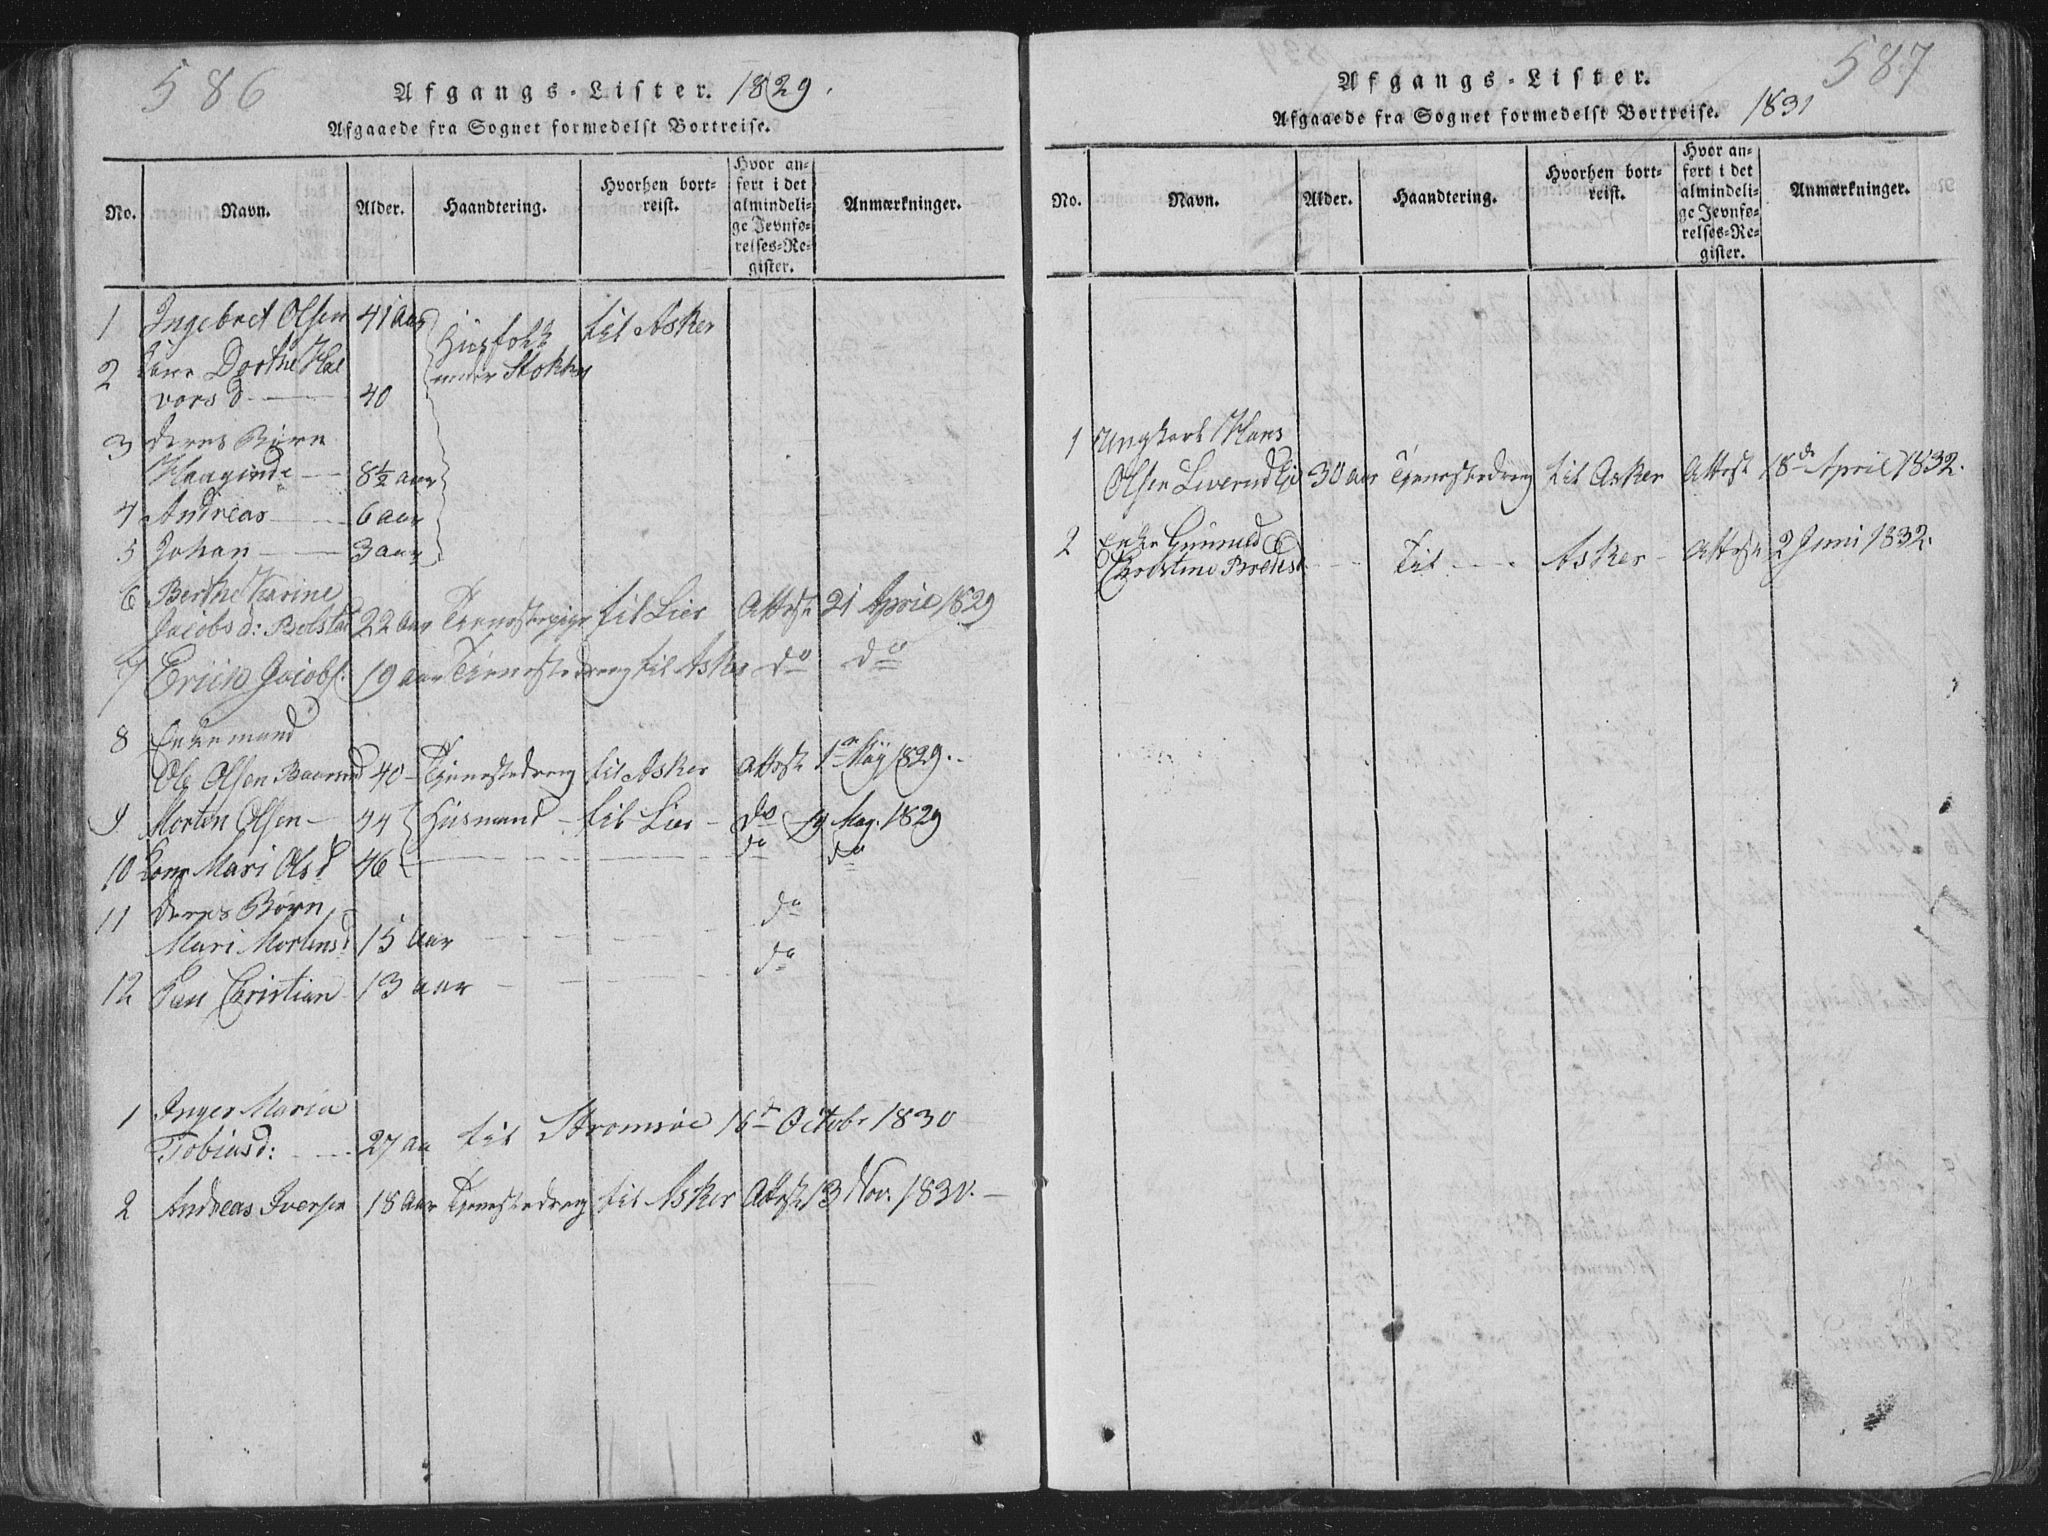 586
Afgangs-Lister. 1829.
Afgaaede fra Sognet formedelst Bortreise.
No. Navn. Alder. Haandtering. Hvorhen bort-reist. Hvor an-ført i det almindeli-ge Jevnfø-relses-Re-gister. Anmærkninger.
1 Ingebret Olsen 41 aar Huusfolk til Asker
2 Kone Dorthe Hal under Stokker
vorsd 40
3 deres Børn
8½ aar
4 Andreas 6 aar
5 Johan 3 aar
6 Berthe Karine
Jacobsd: Bolstad 22 aar Tienestepige til Lier Attest 21 April 1829
7 Erich Jacobs. 19 aar Tienestedreng til Asker do do
8 Enkemand
Ole Olsen 40 Tienestedreng til Asker Attest 1 May 1829.
9 Morten Olsen 44 Huusmand til Lier do May. 1829
10 Kone Mari Olsd 46 do do
11 deres Børn do
Mari Mortensd 15 aar
12 Christian 13 aar do
1 Inger Maria
Tobiasd: 27 aa til Stromsøe 16d Octobr 1830
2 Andreas Iversen 18 aar Tienestedreng til Asker Attest 13 Nov. 1830.
587
Afgangs-Lister.
Afgaaede fra Sognet formedelst Bortreise. 1831
No. Navn. Alder. Haandtering. Hvorhen bort-reist. Hvor an-ført i det almindeli-ge Jevnfø-relses-Re-gister. Anmærkninger.
1 Ungkarl Hans
Olsen 30 aar Tienestedreng til Asker Attest 18de April 1832.
2 Enke
Christine til Asker Attest 2 Juni 1832.